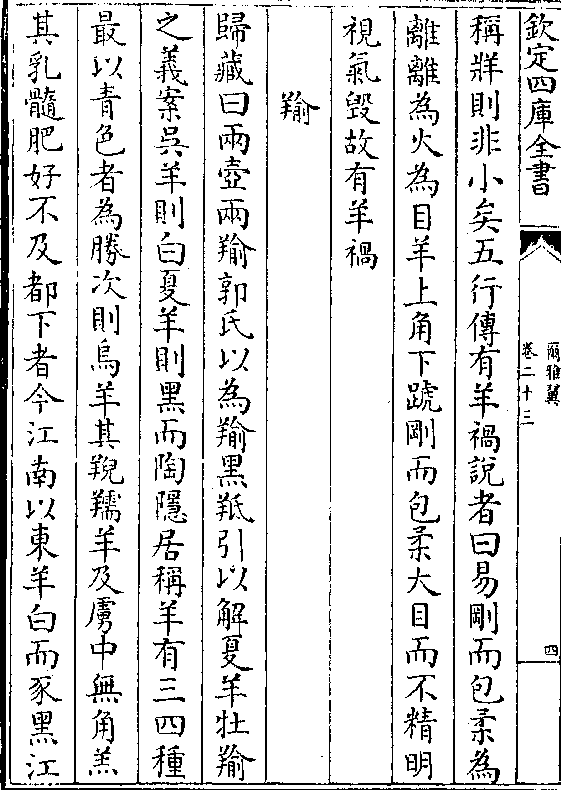 欽定四庫全書
爾雅翼
卷二十三
四
稱牂則非小矣五行傳有羊禍說者曰易剛而包柔為
離離為火為目羊上角下蹏剛而包柔大目而不精明
視氣毀故有羊禍
羭
歸藏曰兩壺兩羭郭氏以為羭黑羝引以解夏羊牡羭
之義案吳羊則白夏羊則黑而陶隱居稱羊有三四種
最以青色者為勝次則烏羊其羖䍶羊及虜中無角羔
其乳髓肥好不及都下者今江南以東羊白而豕黑江